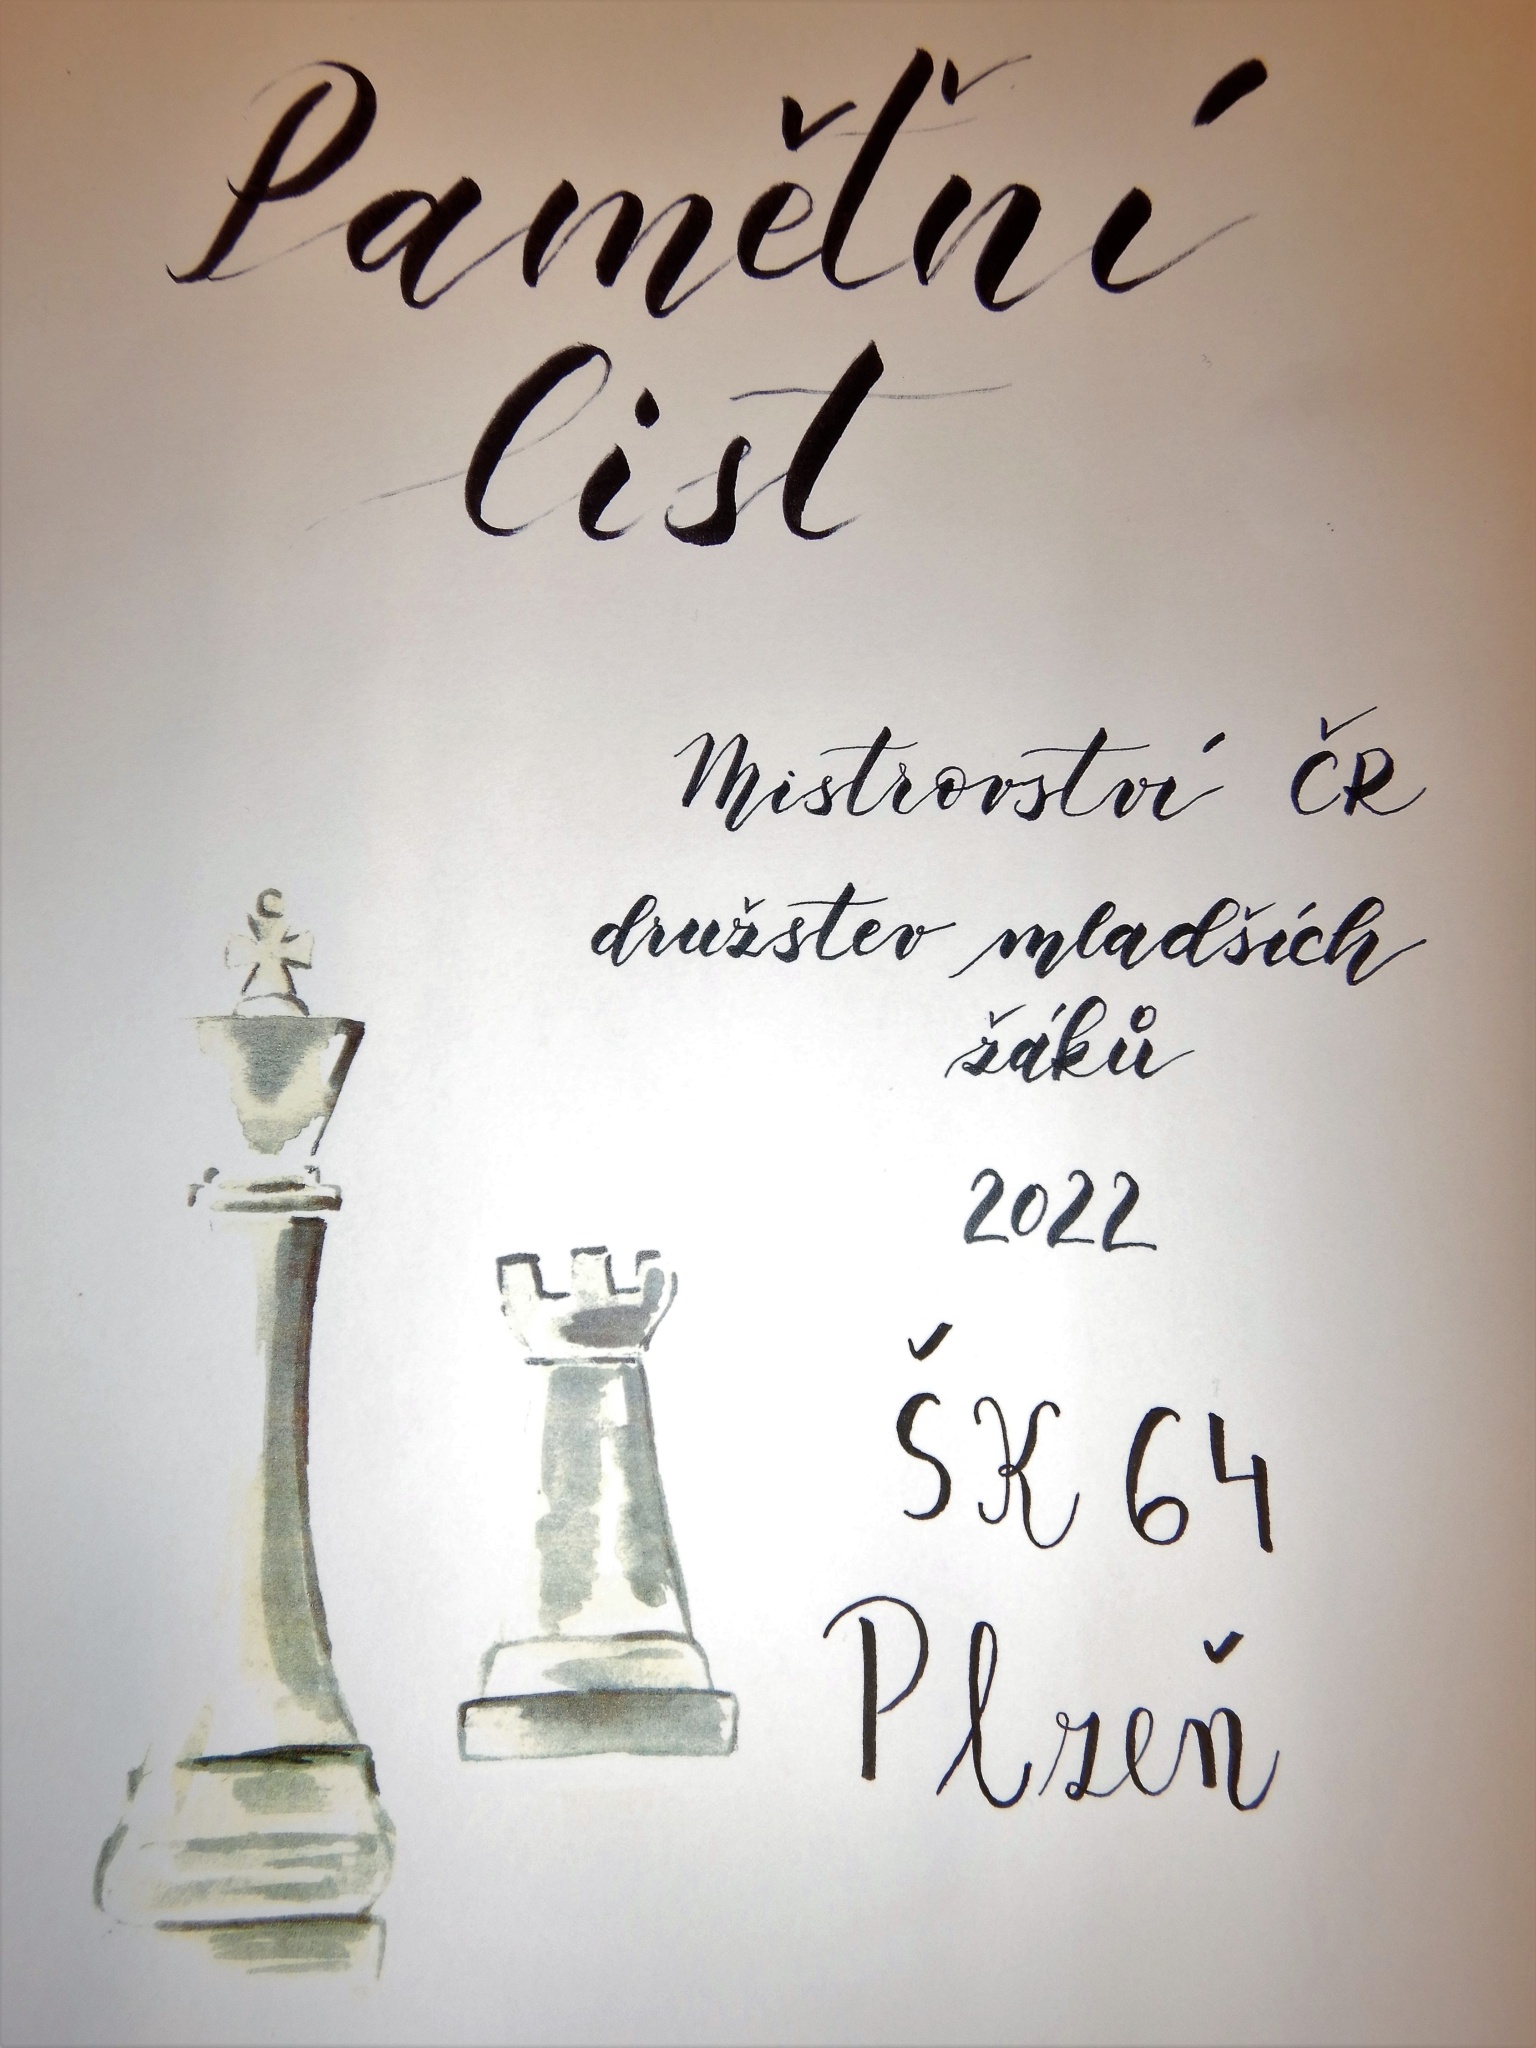 Pamětňí
list
Mistrovství ČR
družstev mladších
žáků
2022
ŠK 64
Plzeň